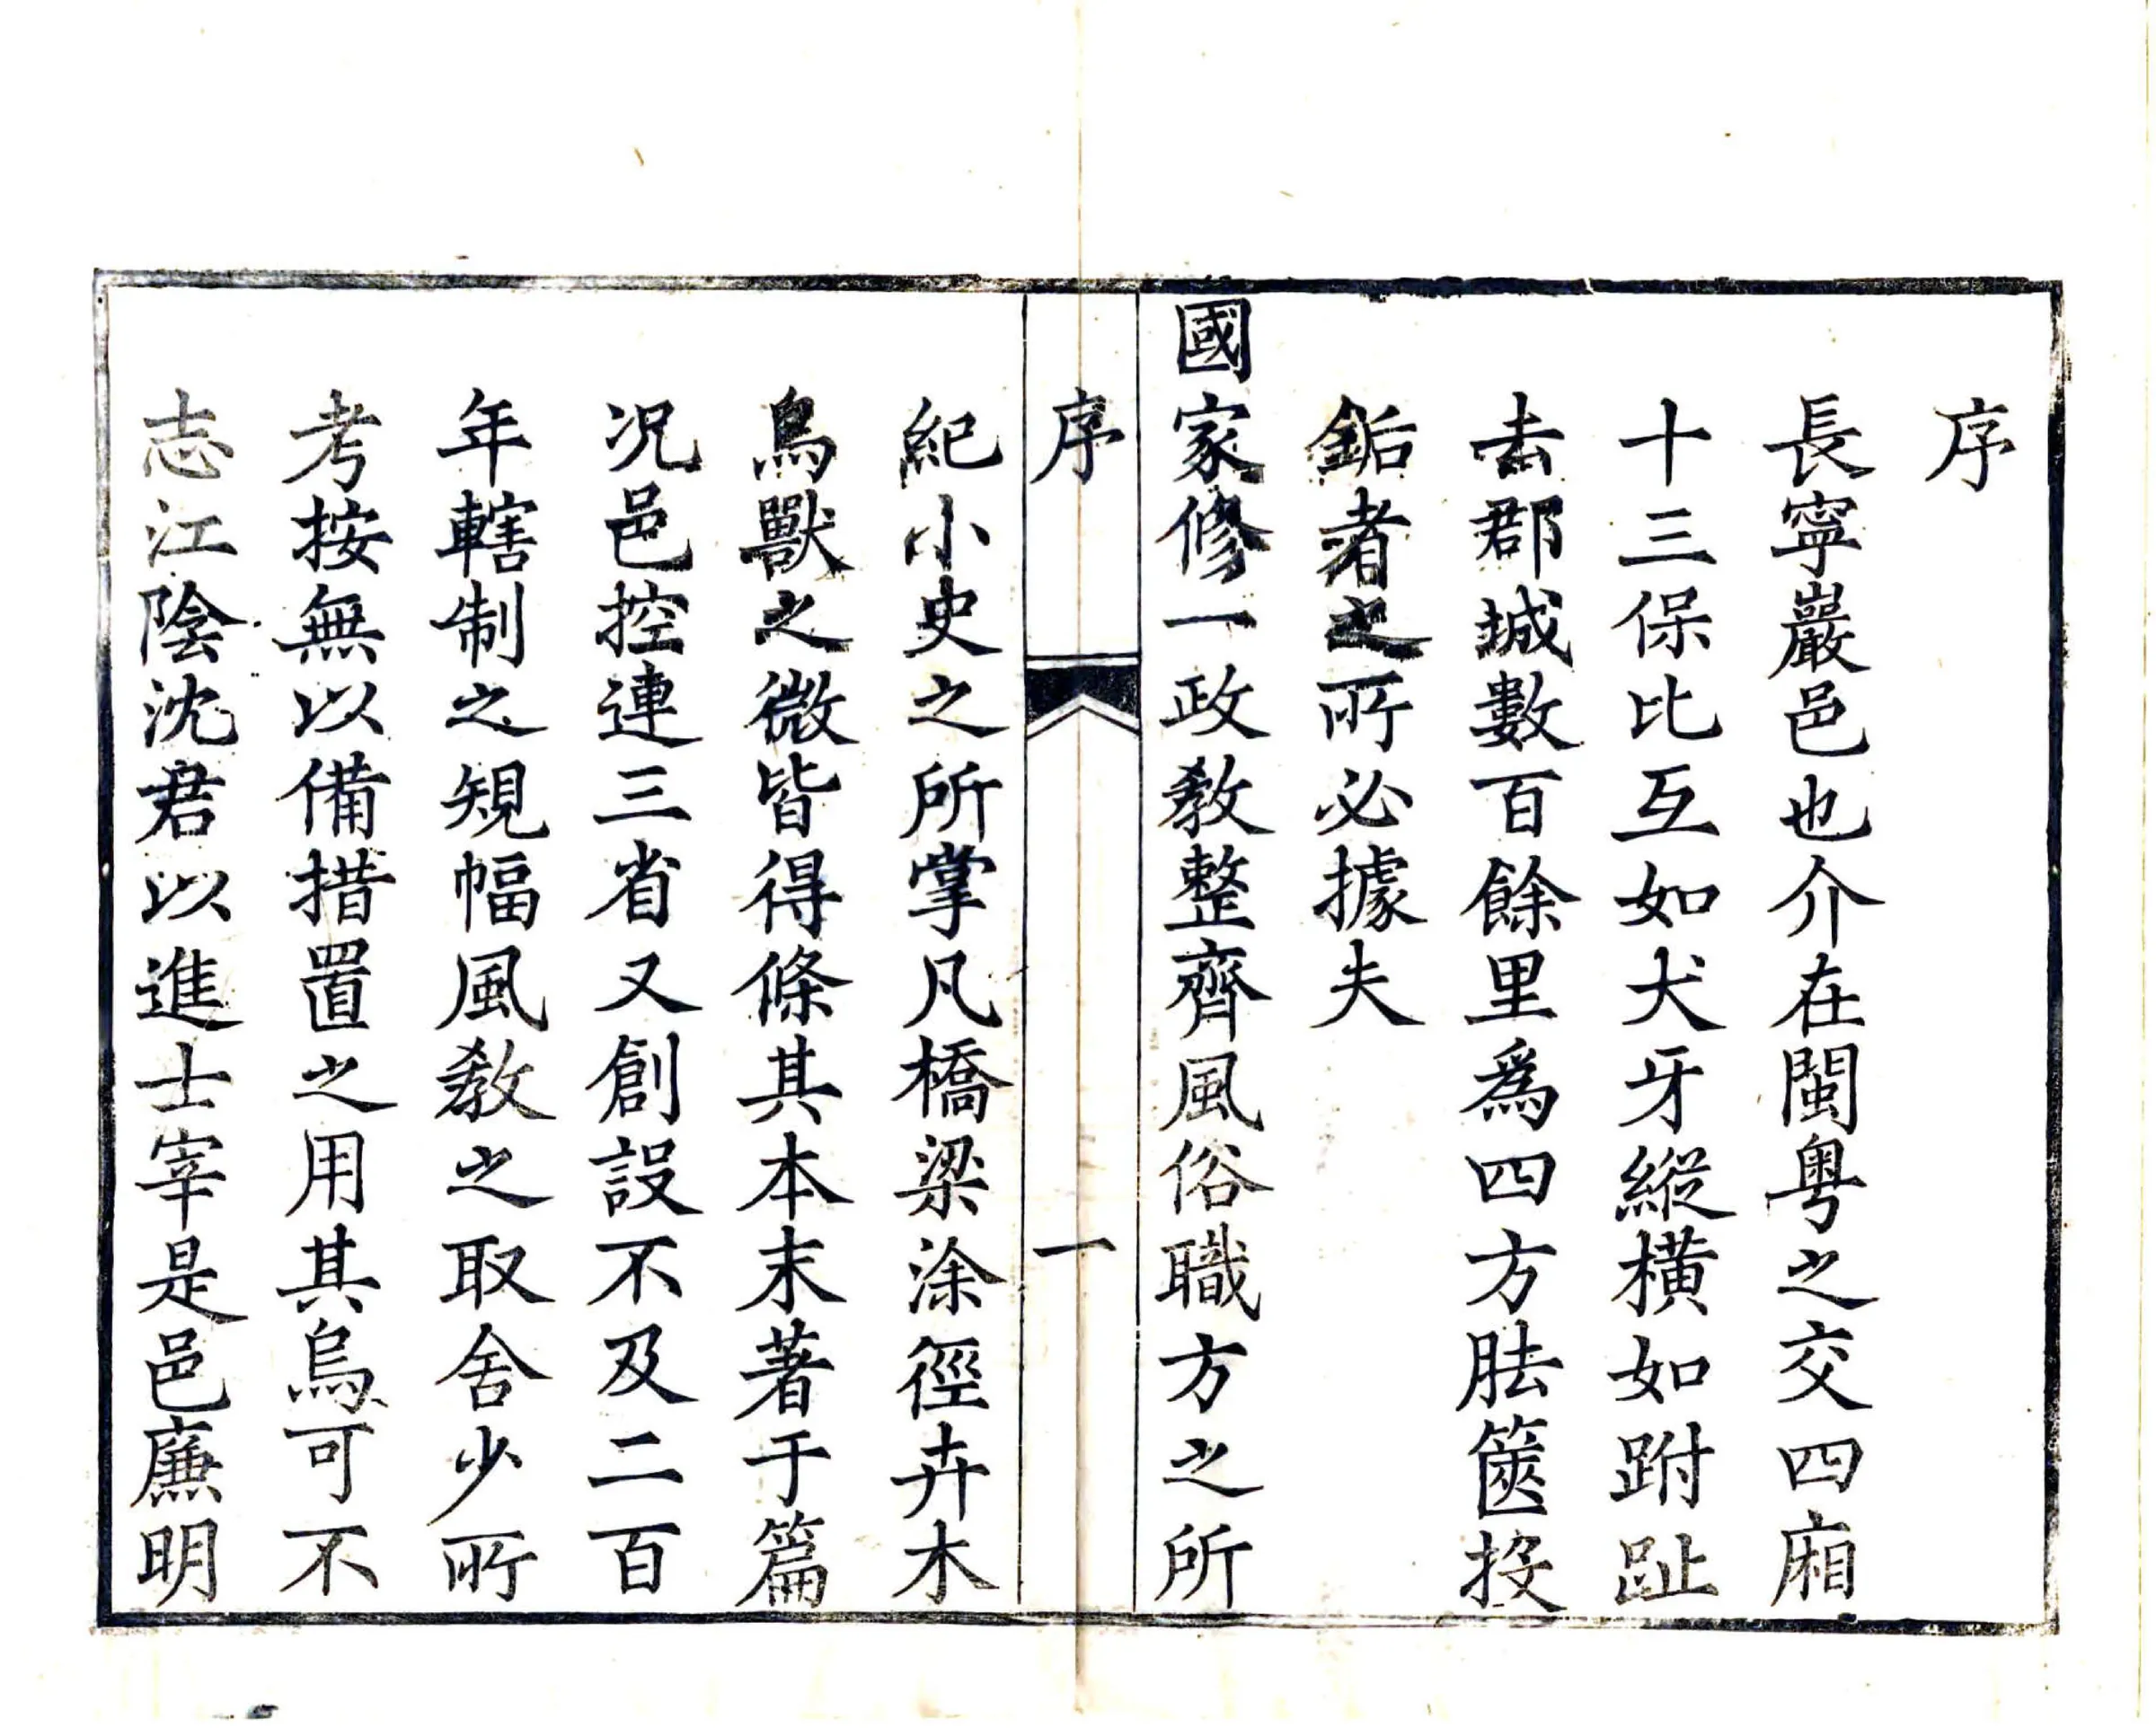 序
長寧巖邑也介在閩粤之交四廂
十三保比互如犬牙縱橫如跗趾
去郡城數百餘里爲四方胠篋投
鉐者之所必據夫
國家修一政教整齊風俗職方之所
序
一
紀小史之所掌凡橋梁涂徑卉木
鳥獸之微皆得條其本末著于篇
况邑控連三省又創設不及二百
年轄制之規幅風教之取舍少所
考按無以備措置之用其烏可不
志江陰沈君以進士宰是邑廉明